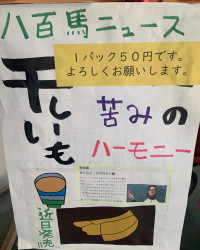 八百馬ニュース
1パック50円です。
よろしくお願いします。
干しいも
苦みの
ハーモニー
近日発売